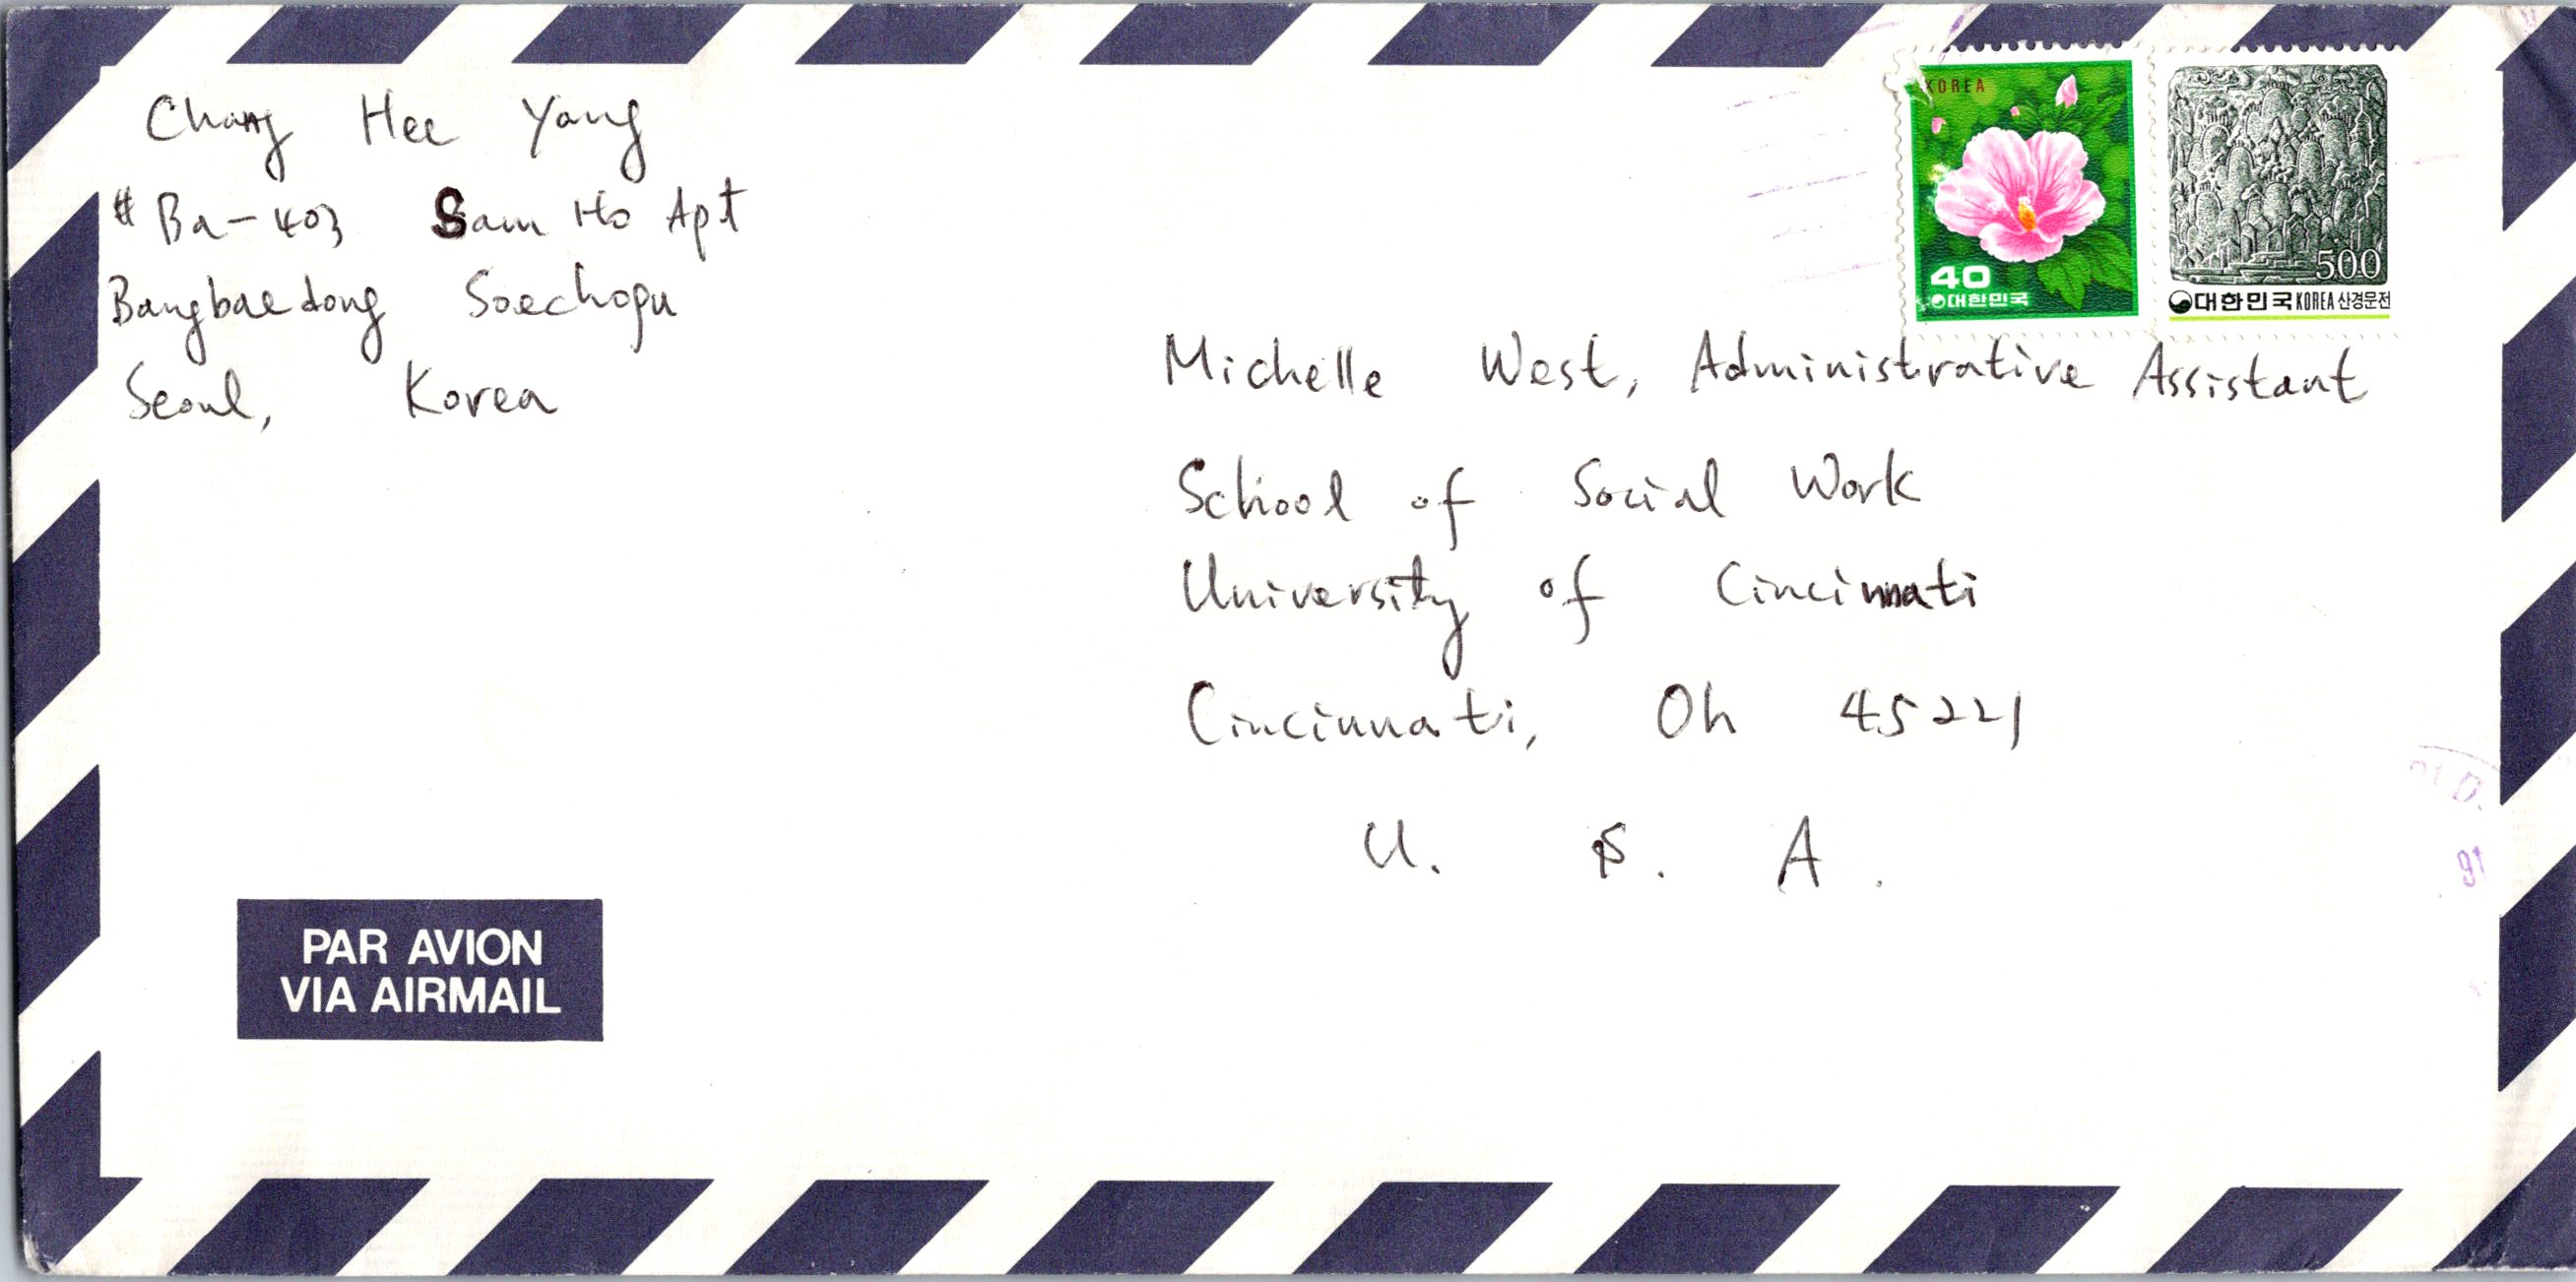 Chang Hee Yang
# Ba-403 Sam Ho Apt
Bangbaedong Soechogu
Seoul, Korea
KOREA
40
대한민국
500
대한민국 KOREA 산경문전
Michelle West, Administrative Assistant
School of Social Work
University of Cincinnati
Cincinnati, Oh 45221
U. S. A.
91
PAR AVION
VIA AIRMAIL